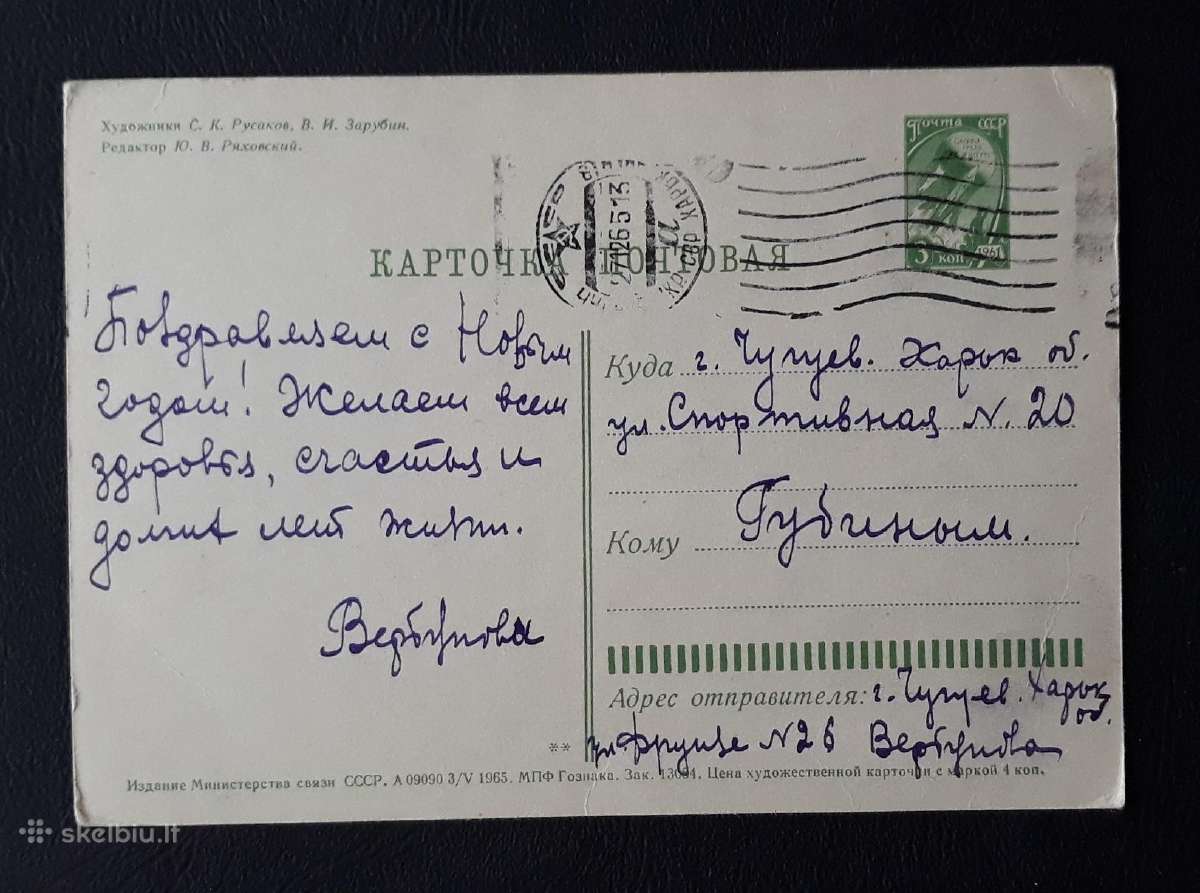 Художники С. К. Русаков, В. И. Зарубин.
Редактор Ю. В. Ряховский.
Почта СССР
3 коп
1961
271265 13
КАРТОЧКА ПОЧТОВАЯ
Поздравляем с Новым
годом! Желаем всем
здоровья, счастья и
долгих лет жизни.
Вербунова
Куда г. Чугуев. Харьк об.
ул. Спортивная N. 20
Кому Губиным.
Адрес отправителя: г. Чугуев. Харьк
об.
ул Фрунзе N 26 Вербунова
**
Издание Министерства связи СССР. А 09090 3/V 1965. МПФ Гознака. Зак. 13094. Цена художественной карточки с маркой 4 коп.
skelbiu.lt